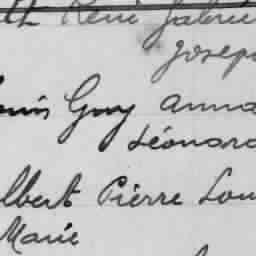 René Gabrie
Joseph
ouis Guy Anna
Léonard
lbert Pierre Lou
Marie